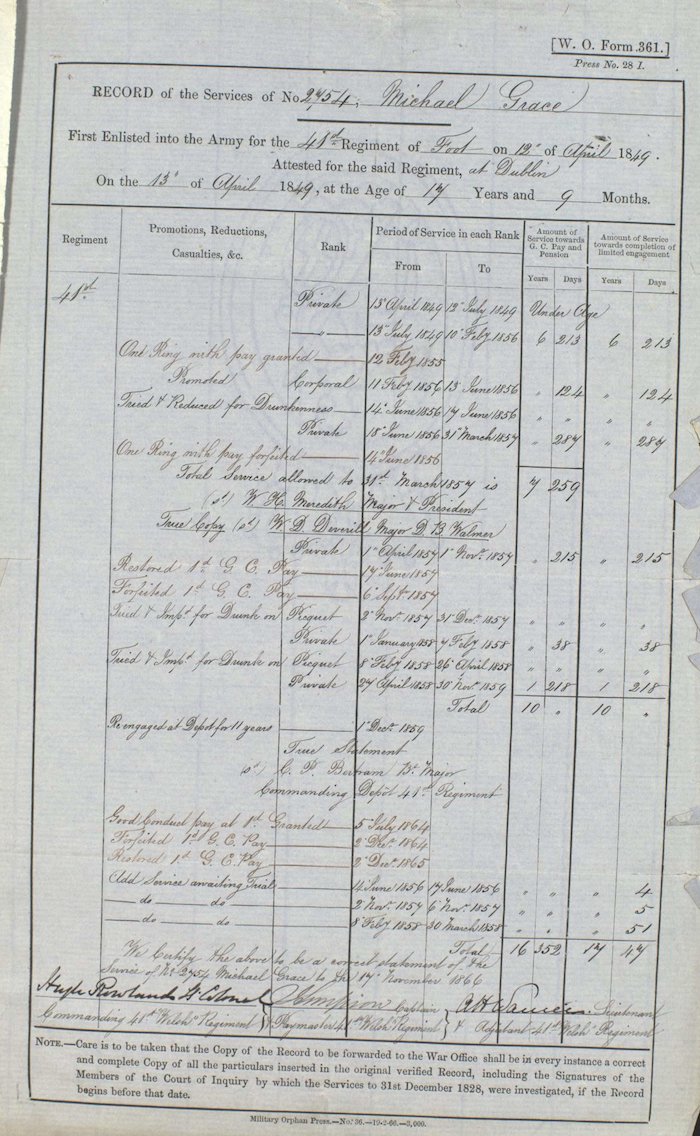 [W. O. Form 361.]
Press No. 28 I.
RECORD of the Services of No 2754, Michael Grace
First Enlisted into the Army for the 41st Regiment of Foot on 12th of April 1849.
Attested for the said Regiment, at Dublin
On the 13th of April 1849, at the Age of 17 Years and 9 Months.
Regiment Promotions, Reductions, Casualties, &c. Rank Period of Service in each Rank From To Amount of Service towards G. C. Pay and Pension Years Days Amount of Service towards completion of limited engagement Years Days
41st Private 13 April 1849 12 July 1849 Under Age
—„— 13 July 1849 10 Feby 1856 6 213 6 213
One Ring with pay granted 12 Feby 1855
Promoted Corporal 11 Feby 1856 13 June 1856 „ 124 „ 124
Tried & Reduced for Drunkenness 14 June 1856 17 June 1856 „ „ „ „
Private 18 June 1856 31st March 1857 „ 287 „ 287
One Ring with pay forfeited 14 June 1856
Total Service allowed to 31st March 1857 is 7 259
(sd) W. H. Meredith Major & President
True Copy (sd) W D Deverill Major D. B. Walmer
Private 1st April 1857 1st Novr 1857 „ 215 „ 215
Restored 1st G. C. Pay 17 June 1857
Forfeited 1st G. C. Pay 6 Septr 1857
Tried & Impd for Drunk on Picquet 2 Novr 1857 31 Decr 1857 „ „ „ „
Private 1st January 1858 7 Feby 1858 „ 38 „ 38
Tried & Impd for Drunk on Picquet 8 Feby 1858 26 April 1858 „ „ „ „
Private 27 April 1858 30 Novr 1859 1 218 1 218
Total 10 „ 10 „
Re engaged at Depot for 11 years 1st Decr 1859
True Statement
sd C. P. Bertram Bt Major
Commanding Depôt 41st Regiment
Good Conduct pay at 1d Granted 5 July 1864
Forfeited 1st G. C. Pay 2 Decr 1864
Restored 1st G. C. Pay 2 Decr 1865
Add Service awaiting Trial 14 June 1856 17 June 1856 „ „ „ 4
—do— do— 2 Novr 1857 6 Novr 1857 „ „ „ 5
—do— do— 8 Feby 1858 30 March 1858 „ „ „ 51
Total 16 352 17 47
We Certify the above to be a correct statement of the
Service of No 2754 Michael Grace to the 17 November 1866
Hugh Rowlands Lt Colonel Captain Lieutenant
Commanding 41st Welsh Regiment & Paymaster 41st Welsh Regiment & Adjutant 41st Welsh Regiment
NOTE.—Care is to be taken that the Copy of the Record to be forwarded to the War Office shall be in every instance a correct
and complete Copy of all the particulars inserted in the original verified Record, including the Signatures of the
Members of the Court of Inquiry by which the Services to 31st December 1828, were investigated, if the Record
begins before that date.
Military Orphan Press.—No. 36.—19-2-66.—3,000.